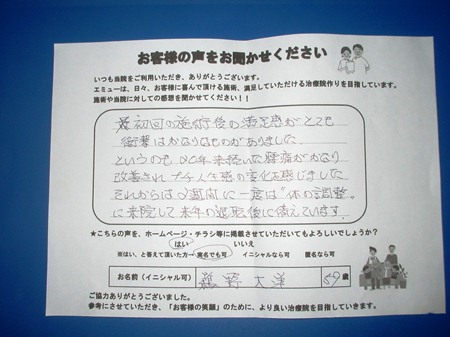 お客様の声をお聞かせください
いつも当院をご利用いただき、ありがとうございます。
エミューは、日々、お客様に喜んで頂ける施術、満足していただける治療院作りを目指しています。
施術や当院に対しての感想を聞かせてください！！
最初回の施術後の満足感がとても
衝撃はかなりなものがありました。
というのも20年来抱いた腰痛がかなり
改善されプチ人生感の変化を感じました
それからは2週間に一度は"体の調整"
に来院して来年の退職後に備えています。
★こちらの声を、ホームページ・チラシ等に掲載させていただいてもよろしいでしょうか？
はい いいえ
※はい、と答えて頂いた方→ 実名でも可 イニシャルなら可 匿名なら可
お名前（イニシャル可） 熊野 大洋 59 歳
ご協力ありがとうございました。
参考にさせていただき、「お客様の笑顔」のために、より良い治療院を目指していきます。